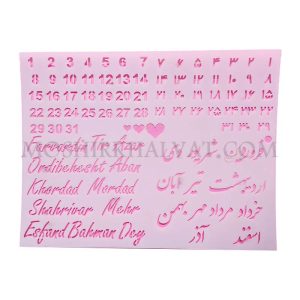 1 2 3 4 5 6 7
8 9 10 11 12 13 14
15 16 17 18 19 20 21
22 23 24 25 26 27 28
29 30 31
۷ ۶ ۵ ۴ ۳ ۲ ۱
۱۴ ۱۳ ۱۲ ۱۱ ۱۰ ۹ ۸
۲۱ ۲۰ ۱۹ ۱۸ ۱۷ ۱۶ ۱۵
۲۸ ۲۷ ۲۶ ۲۵ ۲۴ ۲۳ ۲۲
۳۱ ۳۰ ۲۹
MOSHIRKHALVAT.COM
Farvardin Tir Azar
Ordibehesht Aban
Khordad Mordad
Shahrivar Mehr
Esfand Bahman Dey
شهریور دی
اردیبهشت تیر آبان
خرداد مرداد مهر بهمن
اسفند آذر